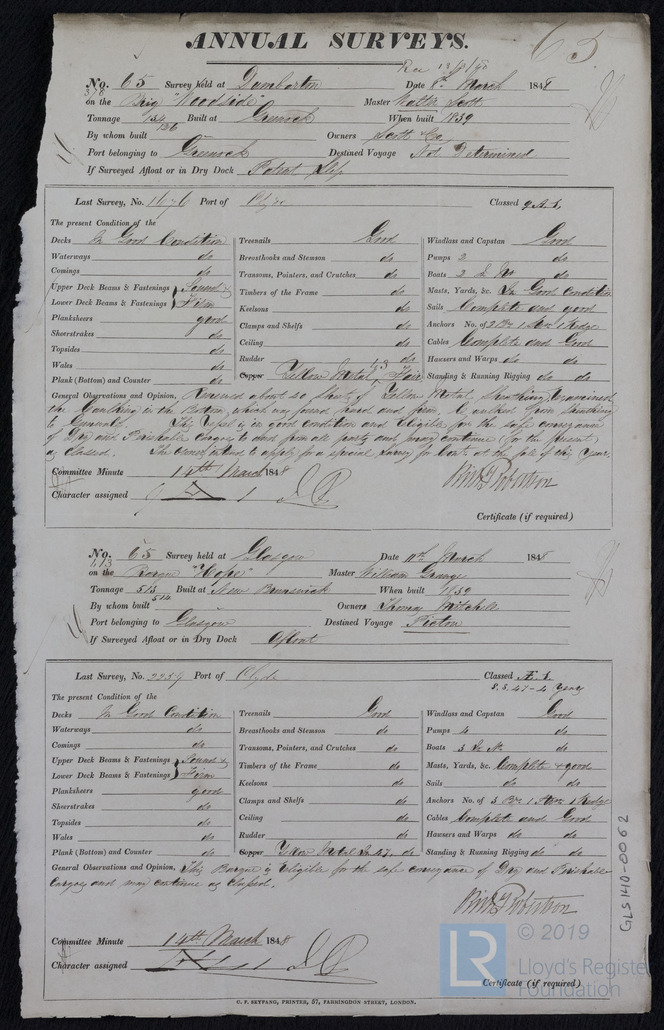 ANNUAL SURVEYS.
65
No. 65 Survey held at Dumbarton Date 8th March 1848
on the Brig "Woodside" Master Walter Scott
Tonnage 154 Built at Greenock When built 1839
126
By whom built Owners Scott & Co
Port belonging to Greenock Destined Voyage Not Determined
If Surveyed Afloat or in Dry Dock Patent Slip
Last Survey, No. 1676 Port of Clyde Classed 9 A.1.
The present Condition of the
Decks In Good Condition Treenails Good Windlass and Capstan Good
Waterways do Breasthooks and Stemson do Pumps 2
Comings do Transoms, Pointers, and Crutches do Boats 2 do
Upper Deck Beams & Fastenings Sound & Timbers of the Frame do Masts, Yards, &c. In Good Condition
Lower Deck Beams & Fastenings Firm Keelsons do Sails Complete and good
Planksheers good Clamps and Shelfs do Anchors No. of 2 Br 1 Strm 1 Kedge
Sheerstrakes do Ceiling do Cables Complete and Good
Topsides do Rudder do Hausers and Warps do do
Wales do Copper Yellow Metal, Fair Standing & Running Rigging do do
Plank (Bottom) and Counter do
General Observations and Opinion, Removed about 20 sheets of Yellow Metal Sheathing & examined
the Caulking in the Bottom, which was found hard and firm. Caulked from Sheathing
to Gunwale. This Vessel is in good condition and eligible for the safe conveyance
of Dry and Perishable Cargoes to and from all ports and may continue (for the present)
as Classed. The owners intend to apply for a special Survey for Cont. at the fall of this Year.
Committee Minute 14th March 1848
Character assigned
Certificate (if required)
No. 65 Survey held at Glasgow Date 11th March 1848
513
on the Barque "Hope" Master William Grange
Tonnage 513 Built at New Brunswick When built 1839
514
By whom built Owners Thomas Mitchell
Port belonging to Glasgow Destined Voyage Pictou
If Surveyed Afloat or in Dry Dock Afloat
Last Survey, No. 2259 Port of Clyde Classed Æ 1.
S.S. 47-4 Years
The present Condition of the
Decks In Good Condition Treenails Good Windlass and Capstan Good
Waterways do Breasthooks and Stemson do Pumps 4
Comings do Transoms, Pointers, and Crutches do Boats 3 do
Upper Deck Beams & Fastenings Sound & Timbers of the Frame do Masts, Yards, &c. Complete & good
Lower Deck Beams & Fastenings Firm Keelsons do Sails do do
Planksheers good Clamps and Shelfs do Anchors No. of 3 Br 1 Strm 1 Kedge
Sheerstrakes do Ceiling do Cables Complete and Good
Topsides do Rudder do Hausers and Warps do do
Wales do Copper Yellow Metal In 47. do Standing & Running Rigging do do
Plank (Bottom) and Counter do
General Observations and Opinion, This Barque is Eligible for the safe conveyance of Dry and Perishable
Cargoes and may continue as Classed.
Committee Minute 14th March 1848
Character assigned
Certificate (if required)
C. F. SEYFANG, PRINTER, 57, FARRINGDON STREET, LONDON.
GLS140-0062
LR © 2019
Lloyd's Register
Foundation